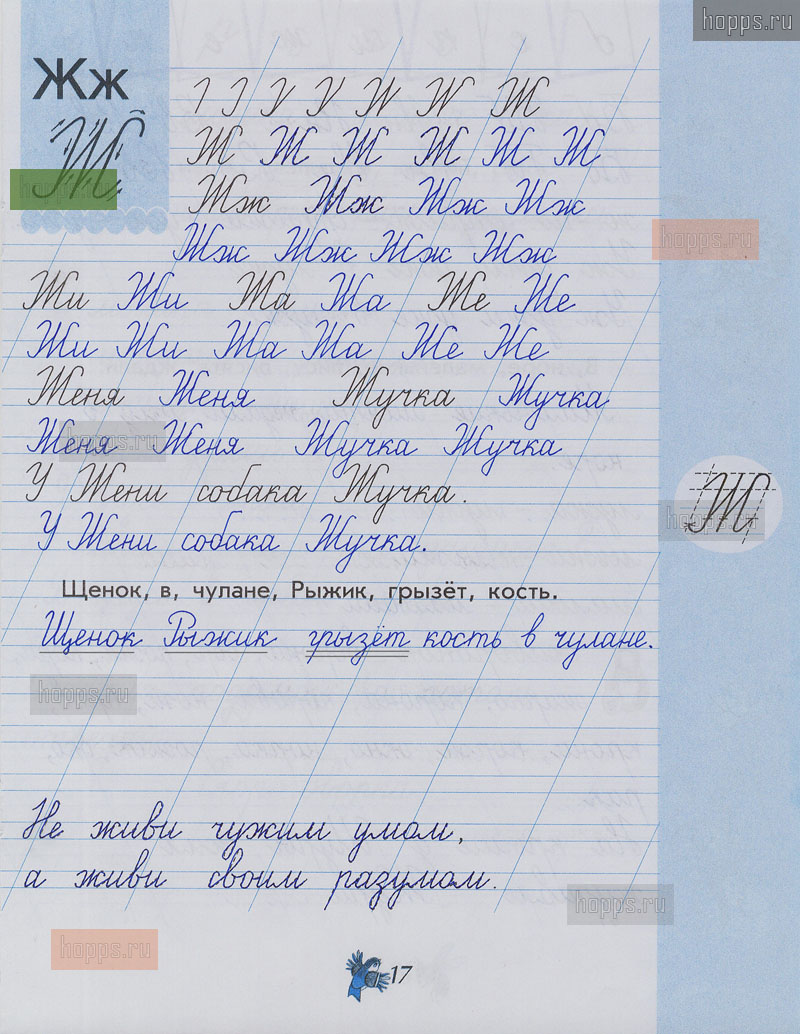 hopps.ru
Жж
Ж
Ж
Ж Ж Ж Ж Ж Ж
Жж Жж Жж Жж
hopps.ru
Жж Жж Жж Жж
Жи Жи Жа Жа Же Же
Жи Жи Жа Жа Же Же
Женя Женя Жучка Жучка
Женя Женя Жучка Жучка
hopps.ru
У Жени собака Жучка.
Ж
hopps.ru
У Жени собака Жучка.
Щенок, в, чулане, Рыжик, грызёт, кость.
Щенок Рыжик грызёт кость в чулане.
hopps.ru
Не живи чужим умом,
а живи своим разумом.
hopps.ru
hopps.ru
17